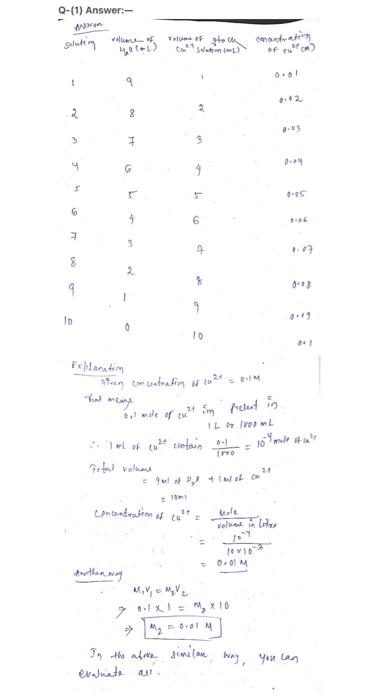 Q-(1) Answer:—
Answer
solution volume of H₂O (mL) volume of stock Cu²⁺ solution (mL) concentration of Cu²⁺ (M)
1 9 1 0.01
2 8 2 0.02
3 7 3 0.03
4 6 4 0.04
5 5 5 0.05
6 4 6 0.06
7 3 7 0.07
8 2 8 0.08
9 1 9 0.09
10 0 10 0.1
Explanation
Given concentration of Cu²⁺ = 0.1 M
That means
0.1 mole of Cu²⁺ ion present in
1 L or 1000 mL
∴ 1 mL of Cu²⁺ contain 0.1/1000 = 10⁻⁴ mole of Cu²⁺
Total volume
= 9 ml of H₂O + 1 ml of Cu²⁺
= 10 ml
Concentration of Cu²⁺ = Mole / volume in Litre
= 10⁻⁴ / 10×10⁻³
= 0.01 M
Another way
M₁V₁ = M₂V₂
⇒ 0.1 × 1 = M₂ × 10
⇒ M₂ = 0.01 M
In the above similar way, you can
evaluate all.